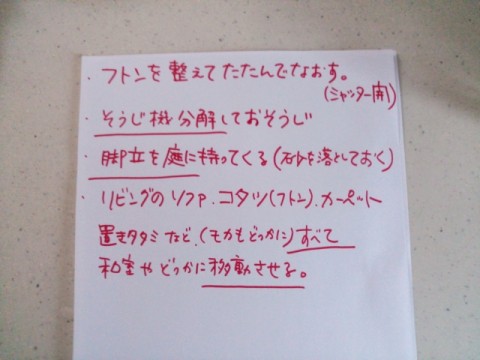 ・フトンを整えてたたんでなおす。
(シャッター開)
・そうじ機分解しておそうじ
・脚立を庭に持ってくる(砂を落としておく)
・リビングのソファ.コタツ(フトン).カーペット
置きタタミなど.(モカもどっかに)すべて
和室やどっかに移動させる。